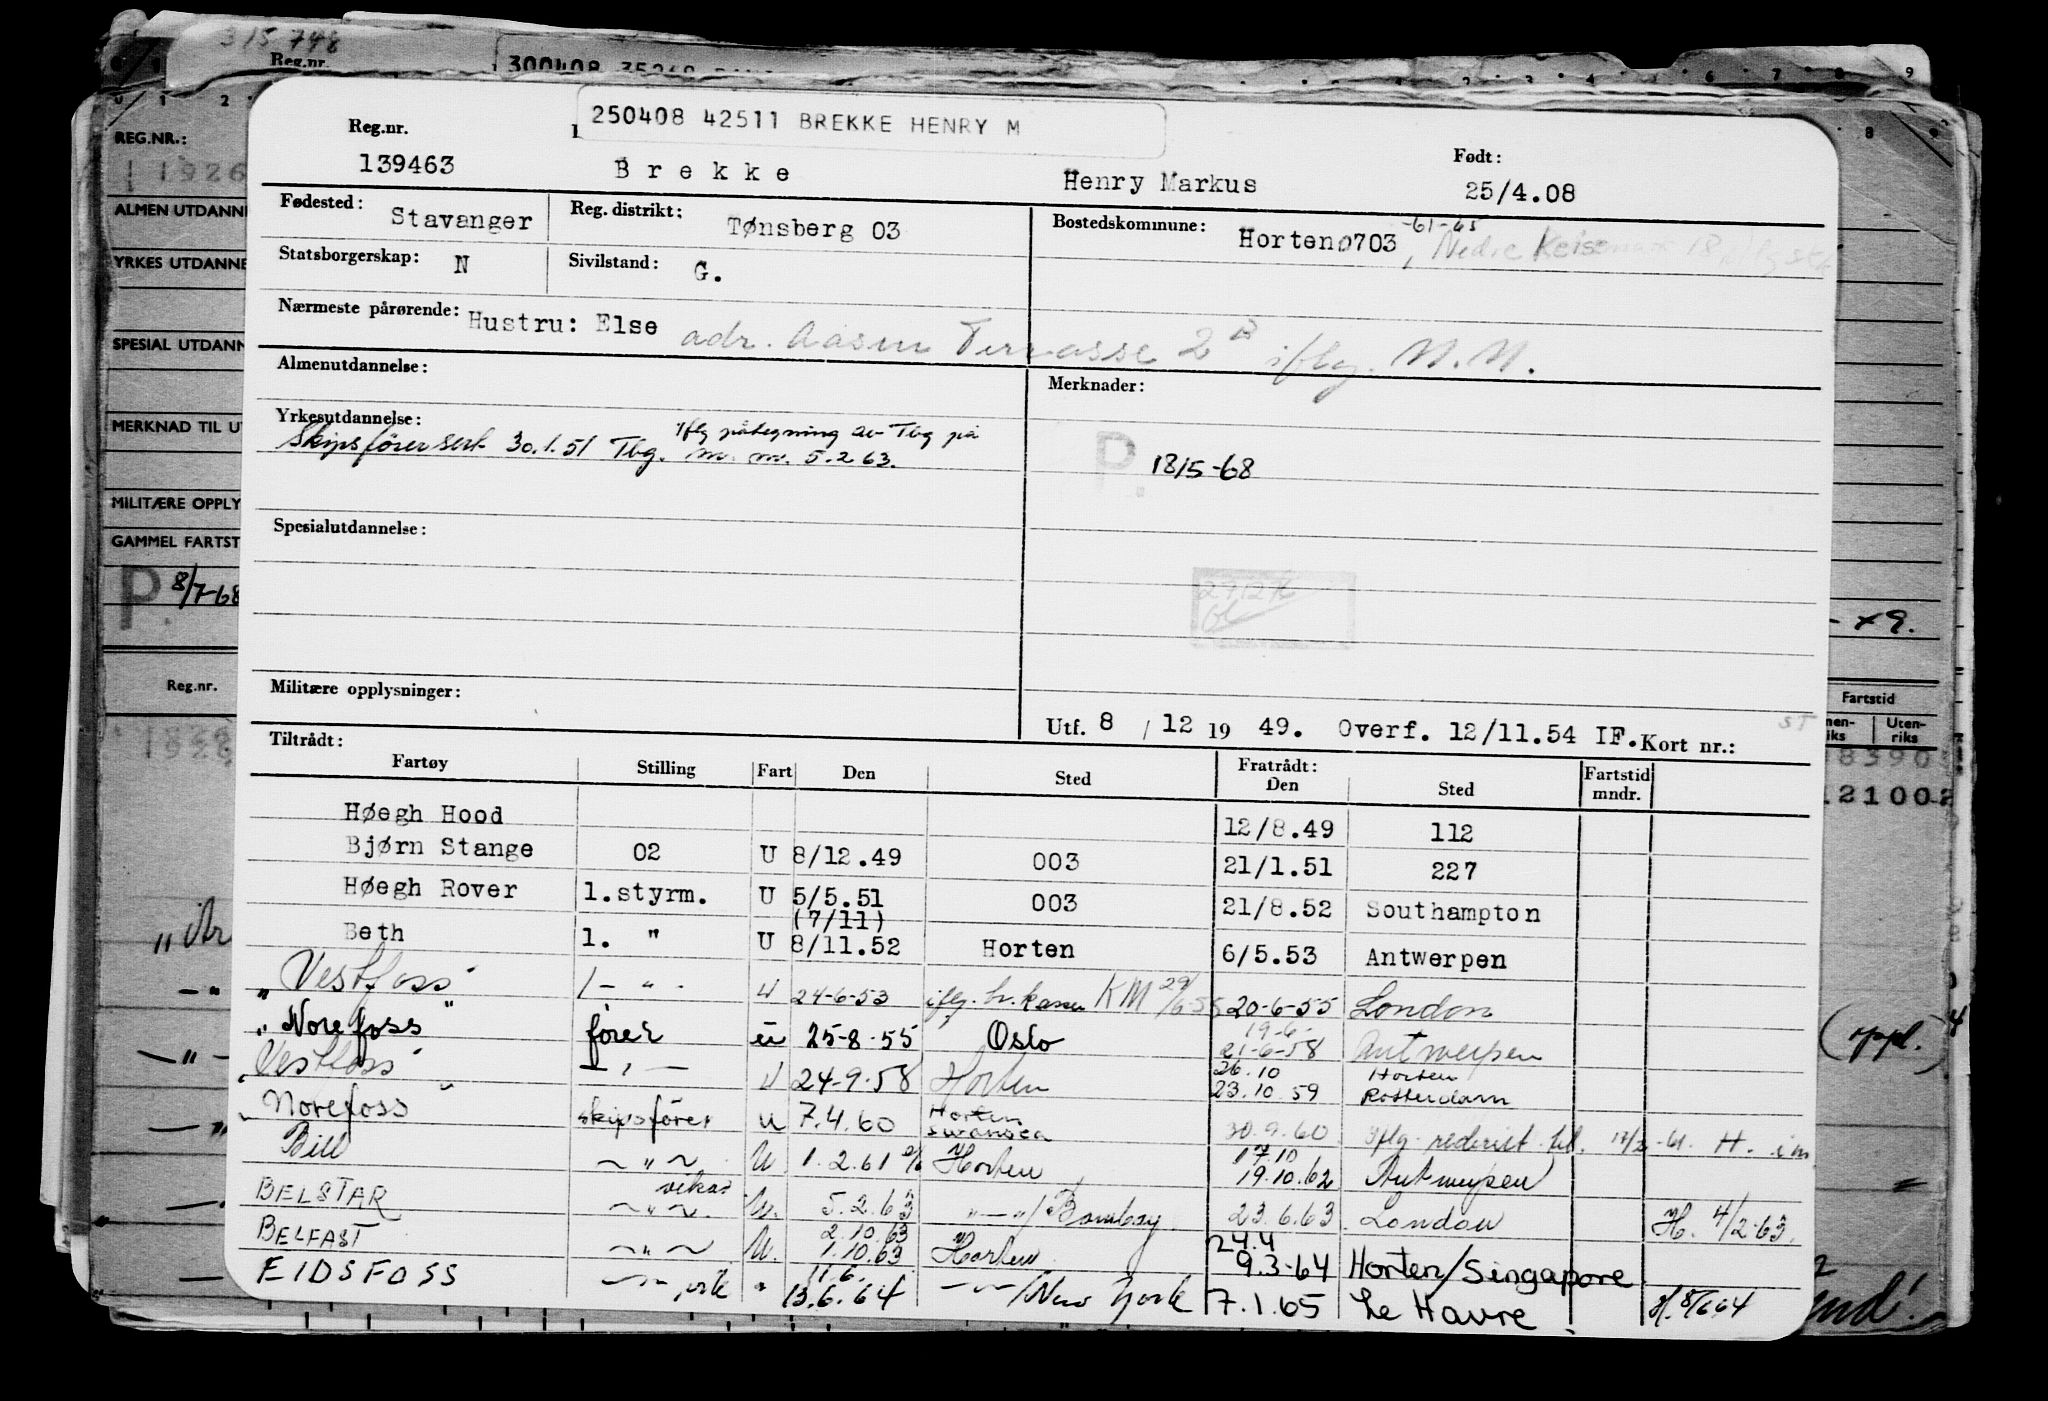 315 748
Reg.nr.
250408 42511 BREKKE HENRY M
Reg.nr.
Født:
139463 Brekke Henry Markus 25/4.08
Fødested: Stavanger Reg. distrikt: Tønsberg 03 Bostedskommune: Horten 0703 -61-65
Statsborgerskap: N Sivilstand: G.
Nærmeste pårørende: Hustru: Else adr. Aasen Terrasse 2B iflg. M.M.
Almenutdannelse: Merknader:
Yrkesutdannelse: iflg påtegning av Tbg på
Skipsfører sert 30.1.51 Tbg. m.m. 5.2 63.
P. 18/5-68
Spesialutdannelse:
Militære opplysninger:
Utf. 8 / 12 19 49. Overf. 12/11.54 IF. Kort nr.:
Tiltrådt: Fratrådt:
Fartøy Stilling Fart Den Sted Den Sted Fartstid mndr.
Høegh Hood 12/8.49 112
Bjørn Stange 02 U 8/12.49 003 21/1.51 227
Høegh Rover 1.styrm. U 5/5.51 003 21/8.52 Southampton
(7/11)
Beth 1. " U 8/11.52 Horten 6/5.53 Antwerpen
"Vestfoss" 1 - " - U 24-6-53 iflg. hr. KM 29/6-55 20-6-55 London
"Norefoss" fører u 25-8-55 Oslo 19-6- 21-6-58 Antwerpen
"Vestfoss" - " - U 24-9-58 Horten 26.10 Horten 23.10 59 Rotterdam
"Norefoss" skipsfører u 7.4.60 Horten Swansea 30.9.60 Iflg. rederiet
Bill - " - U. 1.2.61 Horten 17.10 19.10.62 Antwerpen
BELSTAR vikar - " - U. 5.2.63 - " - / Bombay 23.6.63. London H. 4/2-63.
BELFAST - " - U. 2.10.63 1.10.63 Horten 24.4 9.3-64 Horten/Singapore
EIDSFOSS - " - " 11.6. 13.6.64 - " - / New York 7.1.65 Le Havre H. 8/6 64
REG.NR.:
11926
ALMEN UTDANNE
YRKES UTDANNE
SPESIAL UTDANN
MERKNAD TIL U
MILITÆRE OPPLY
GAMMEL FARTST
P. 8/7-68
Reg.nr.
Fartstid
Uten-
riks
18390
121002
(oppl.)